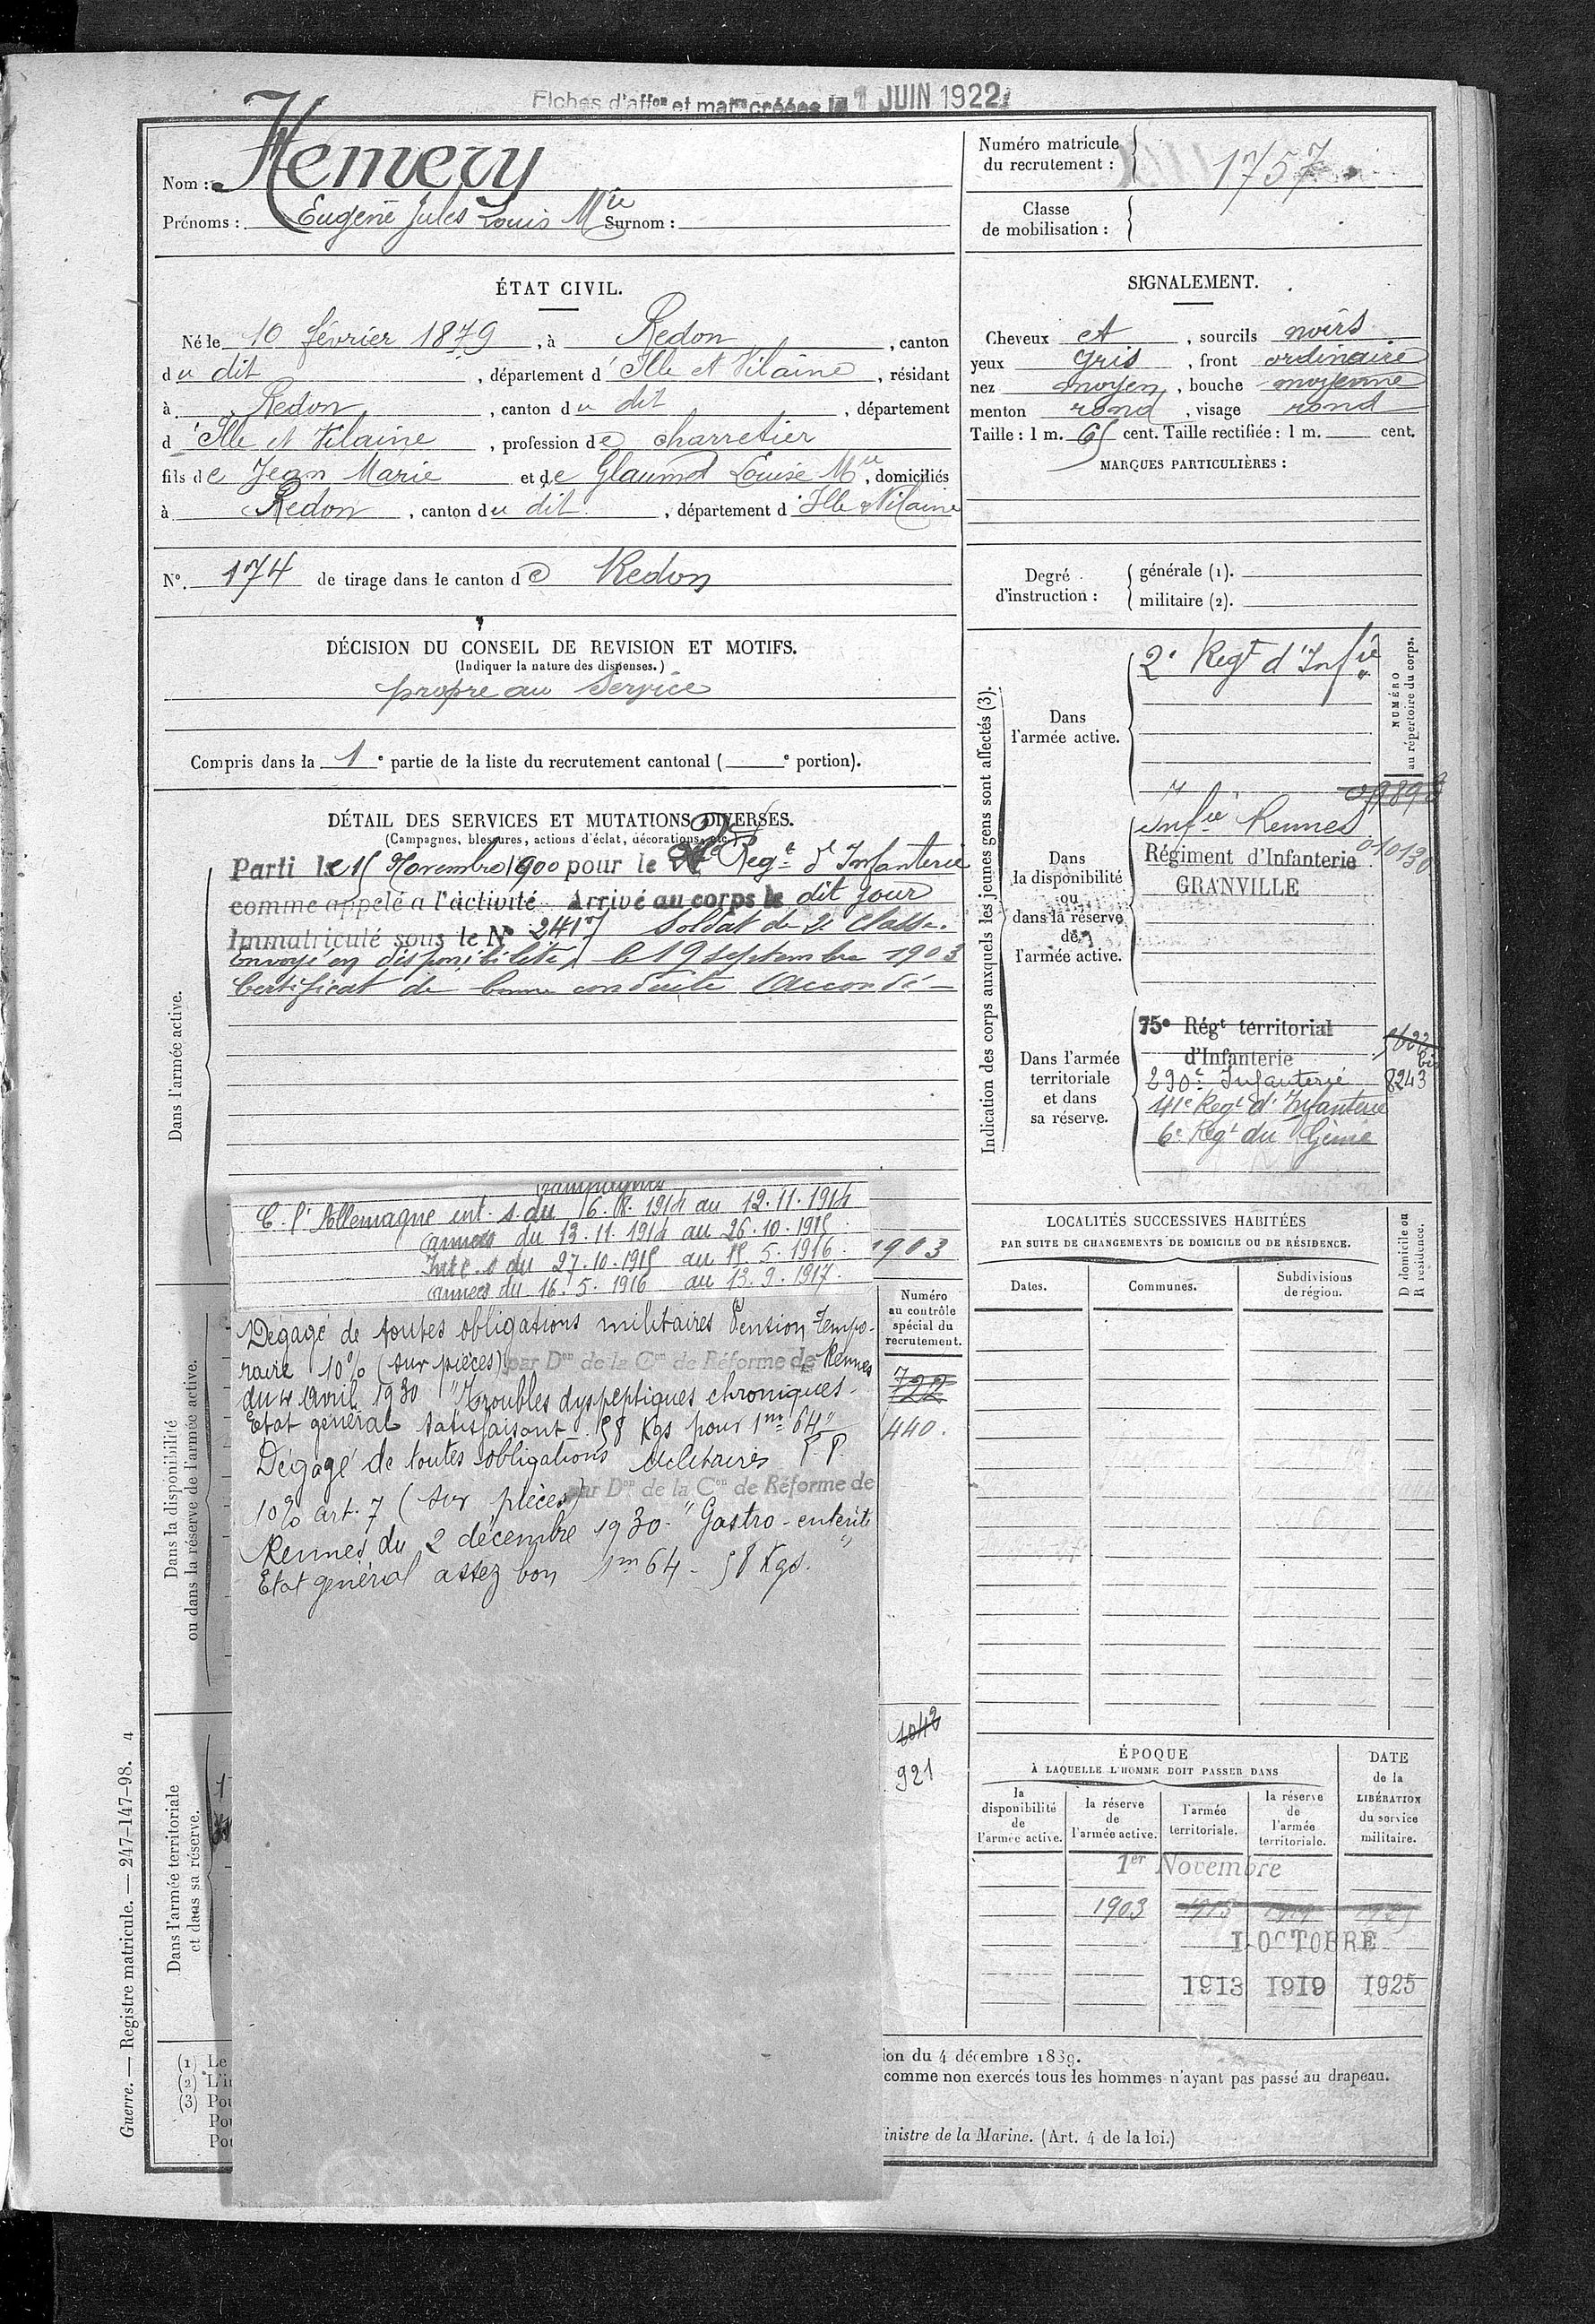 Fiches d'affon et matres créées le 1 JUIN 1922
Nom : Hemery
Prénoms : Eugene Jules Louis Mie Surnom :
Numéro matricule du recrutement : 1757
Classe de mobilisation :
ÉTAT CIVIL.
Né le 10 février 1879, à Redon, canton
du dit, département d'Ille et Vilaine, résidant
à Redon, canton du dit, département
d'Ille et Vilaine, profession de charretier
fils de Jean Marie et de Glaumot Louise Mie, domiciliés
à Redon, canton du dit, département d'Ille & Vilaine
No. 174 de tirage dans le canton de Redon
SIGNALEMENT.
Cheveux et, sourcils noirs
yeux gris, front ordinaire
nez moyen, bouche moyenne
menton rond, visage rond
Taille : 1 m. 65 cent. Taille rectifiée : 1 m. cent.
MARQUES PARTICULIÈRES :
Degré d'instruction :
générale (1).
militaire (2).
DÉCISION DU CONSEIL DE REVISION ET MOTIFS.
(Indiquer la nature des dispenses.)
propre au service
Compris dans la 1e partie de la liste du recrutement cantonal ( e portion).
DÉTAIL DES SERVICES ET MUTATIONS DIVERSES.
(Campagnes, blessures, actions d'éclat, décorations, etc.)
Dans l'armée active.
Parti le 15 Novembre 1900 pour le 2e Regt d'Infanterie
comme appelé à l'activité Arrivé au corps le dit jour
Immatriculé sous le No 2417 Soldat de 2e classe.
Envoyé en disponibilité, le 19 septembre 1903
Certificat de bonne conduite Accordé
Campagnes
C. l'Allemagne int. s du 6.8.1914 au 12.11.1914
armées du 13.11.1914 au 26.10.1915
Int. s du 27.10.1915 au 15.5.1916.
armées du 16.5.1916 au 13.9.1917.
1903
Dégagé de toutes obligations militaires Pension Tempo-
raire 10% (sur pièces) par Don de la Con de Réforme de Rennes
du 4 Avril 1930 "Troubles dyspeptiques chroniques -
Etat général satisfaisant - 58 Kgs pour 1m 64"
Dégagé de toutes obligations Militaires P.P.
10% art. 7 (sur pièces) par Don de la Con de Réforme de
Rennes du 2 décembre 1930. "Gastro-entérite
Etat général assez bon 1m 64 - 58 Kgs. "
Numéro au contrôle spécial du recrutement.
722
440.
1042
921
Dans la disponibilité ou dans la réserve de l'armée active.
Dans l'armée territoriale et dans sa réserve.
Indication des corps auxquels les jeunes gens sont affectés (3).
NUMÉRO au répertoire du corps.
Dans l'armée active.
2e Regt d'Infie
Dans la disponibilité ou dans la réserve de l'armée active.
Infie Rennes
Régiment d'Infanterie 010130
GRANVILLE
Dans l'armée territoriale et dans sa réserve.
75e Régt territorial
d'Infanterie
290e Infanterie 8243
41e Regt d'Infanterie
6e Regt du Génie
LOCALITÉS SUCCESSIVES HABITÉES
PAR SUITE DE CHANGEMENTS DE DOMICILE OU DE RÉSIDENCE.
D domicile ou R résidence.
Dates. Communes. Subdivisions de région.
ÉPOQUE
À LAQUELLE L'HOMME DOIT PASSER DANS
DATE de la LIBÉRATION du service militaire.
la disponibilité de l'armée active.
la réserve de l'armée active.
l'armée territoriale.
la réserve de l'armée territoriale.
1er Novembre
1903 1913
1 OCTOBRE
1913 1919 1925
(1) Le
(2) L'i
(3) Pou
Pou
Pou
ion du 4 décembre 1889.
comme non exercés tous les hommes n'ayant pas passé au drapeau.
inistre de la Marine. (Art. 4 de la loi.)
Guerre. — Registre matricule. — 247-147-98. 4